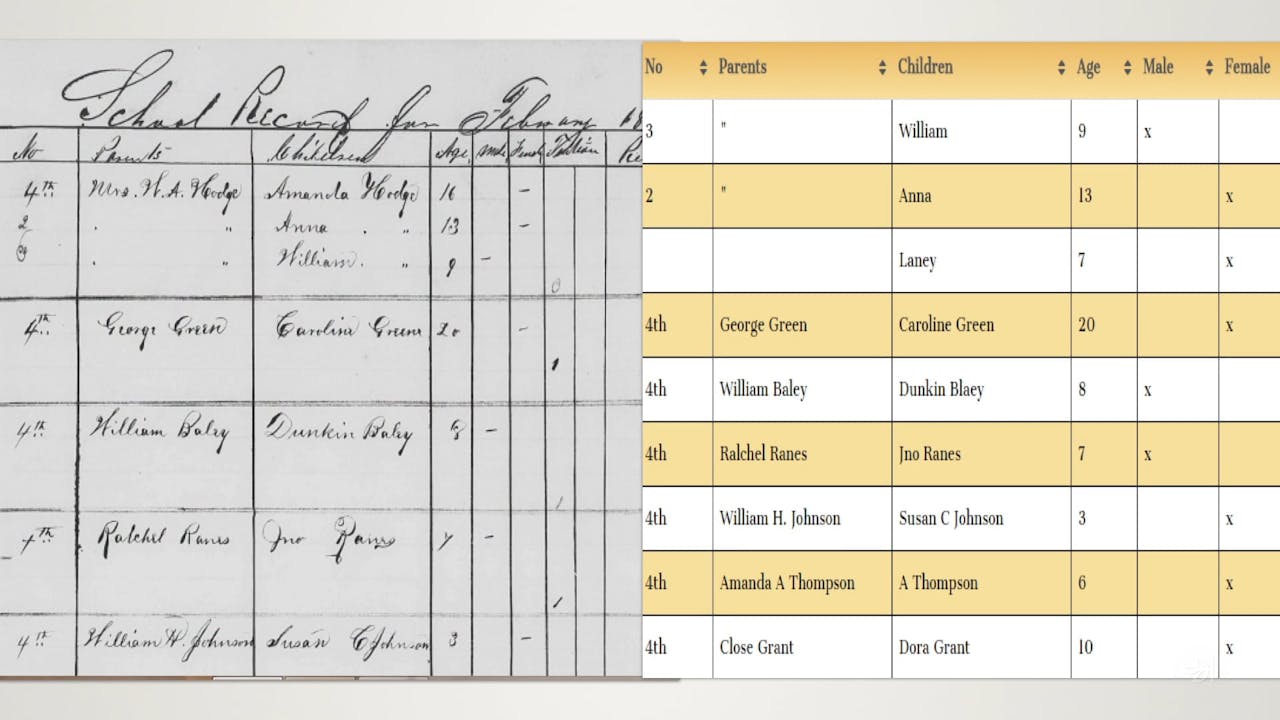 School Record for February 18
No Parents Children Age Male Female
4th Mrs. W. A. Hodge Amanda Hodge 16 –
2 . " Anna . " 13 –
3 . " William. " 9 –
0
4th George Green Caroline Green 20 –
1
4th William Baley Dunkin Baley 8 –
1
4th Ratchel Ranes Jno Ranes 7 –
1
4th William H. Johnson Susan C Johnson 3 –
No Parents Children Age Male Female
3 " William 9 x
2 " Anna 13 x
Laney 7 x
4th George Green Caroline Green 20 x
4th William Baley Dunkin Blaey 8 x
4th Ralchel Ranes Jno Ranes 7 x
4th William H. Johnson Susan C Johnson 3 x
4th Amanda A Thompson A Thompson 6 x
4th Close Grant Dora Grant 10 x